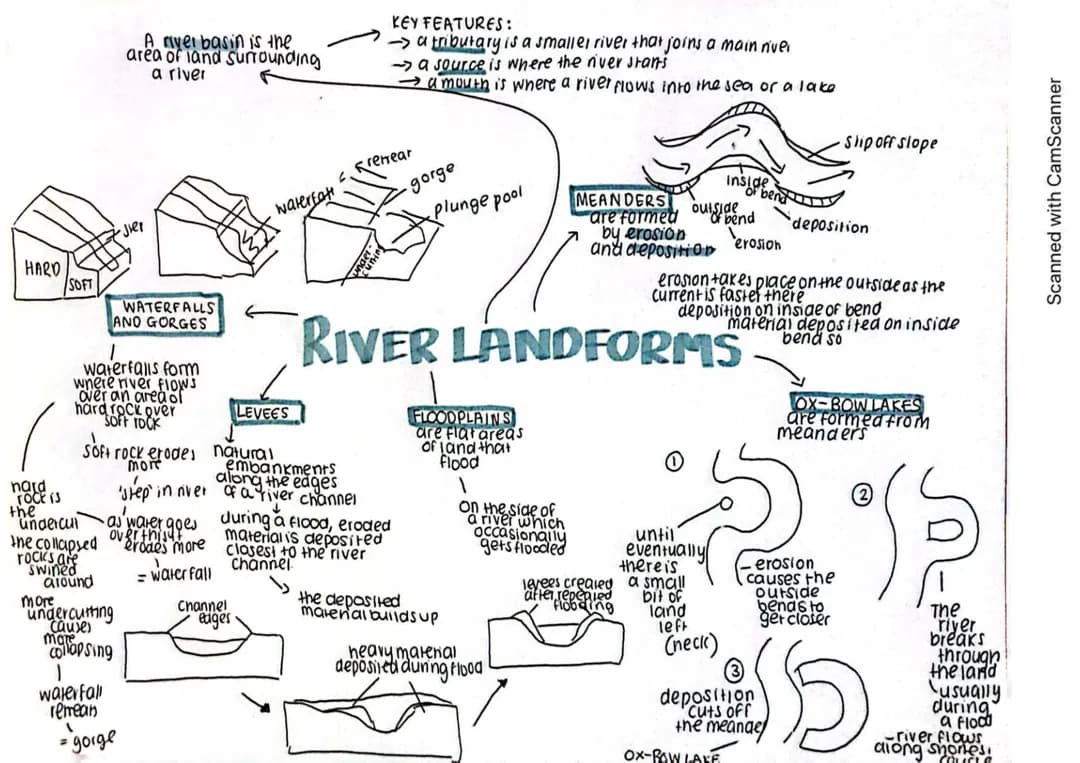 A river basin is the
area of land surrounding
a river
KEY FEATURES:
→ a tributary is a smaller river that joins a main river
→ a source is where the river starts
→ a mouth is where a river flows into the sea or a lake
Scanned with CamScanner
slip off slope
inside
of bend
outside
of bend
deposition
erosion
MEANDERS
are formed
by erosion
and deposition
erosion takes place on the outside as the
current is faster there
deposition on inside of bend
material deposited on inside
bend so
HARD
SOFT
waterfall
gorge
plunge pool
WATERFALLS
AND GORGES
RIVER LANDFORMS
waterfalls form
where river flows
over an area of
hard rock over
soft rock
soft rock erodes
more
'step' in river
as water goes
over this it
erodes more
= waterfall
hard
rock is
the
undercut
the collapsed
rocks are
swined
around
more
undercutting
causes
more
collapsing
waterfall
= gorge
LEVEES
natural
embankments
along the edges
of a river channel
during a flood, eroded
material is deposited
closest to the river
channel.
the deposited
material builds up
channel
edges
heavy material
deposited during flood
levees created
after repeated
flooding
FLOODPLAINS
are flat areas
of land that
flood
on the side of
a river which
occasionally
gets flooded
OX-BOW LAKES
are formed from
meanders
1
until
eventually
there is
a small
bit of
land
left
(neck)
erosion
causes the
outside
bends to
get closer
2
The
river
breaks
through
the land
usually
during
a flood
- river flows
along shortest
course
3
deposition
cuts off
the meander
OX-BOW LAKE